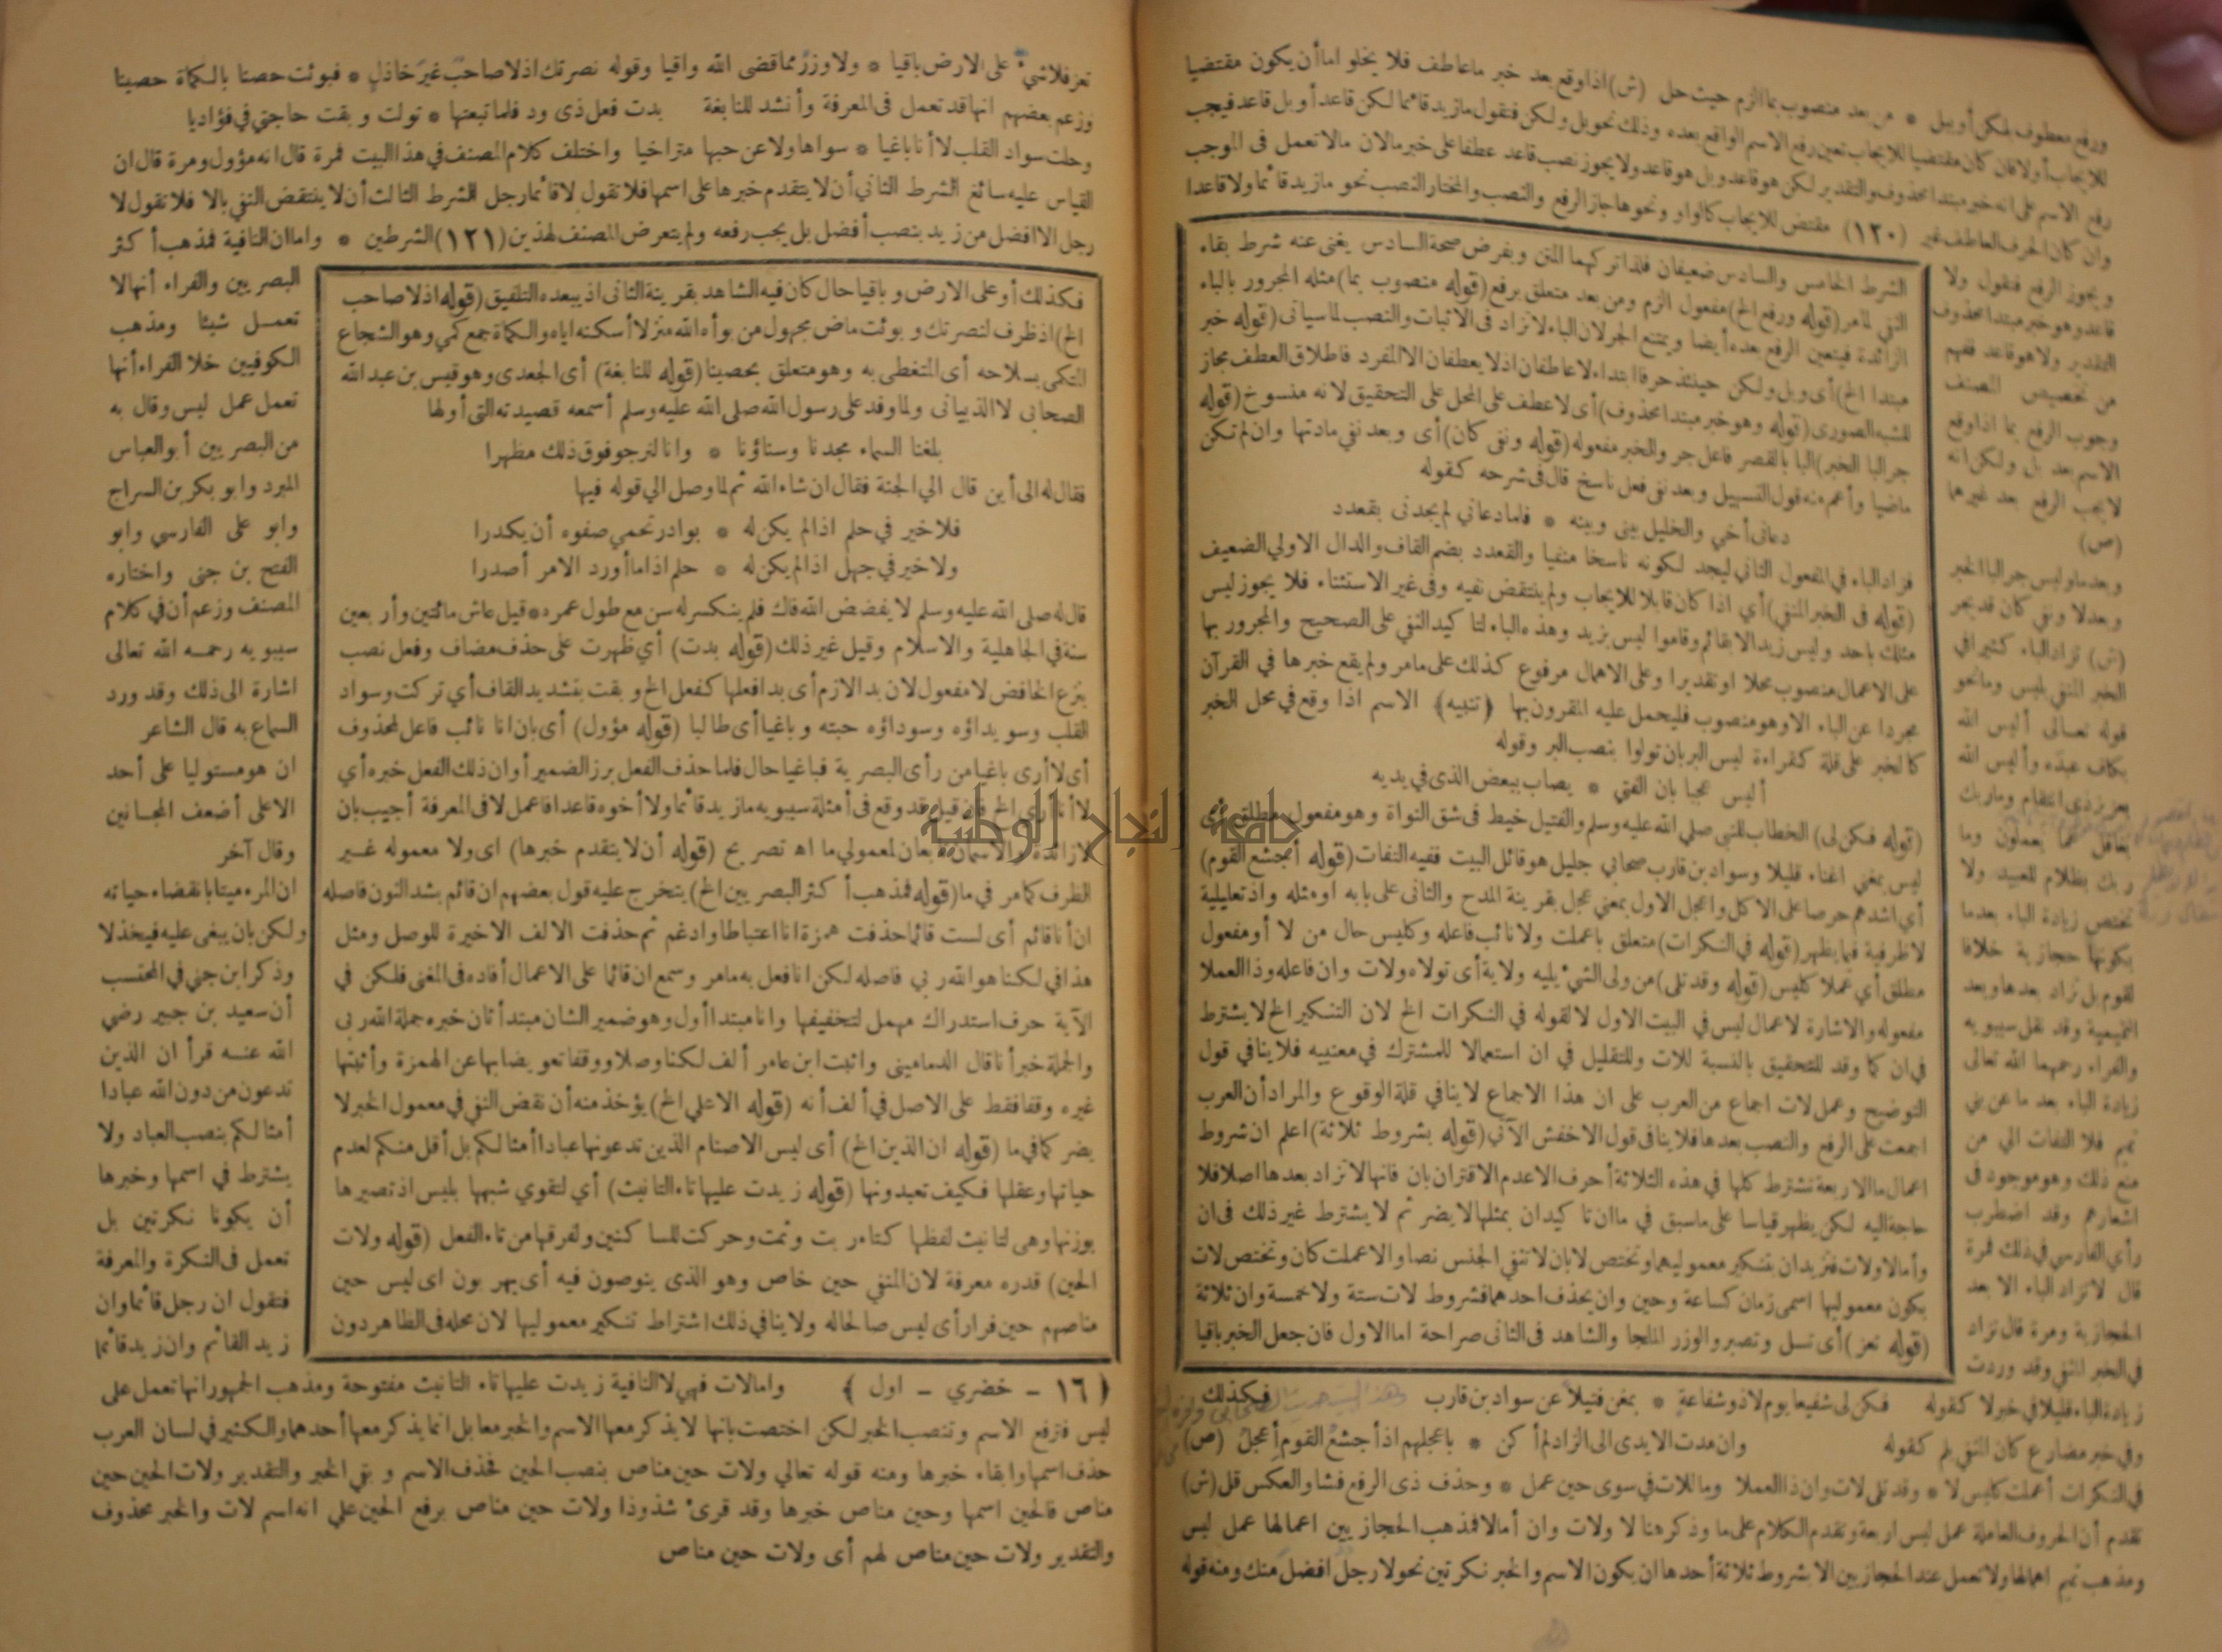 ورفع معطوف بلكن أو ببل * من بعد منصوب بما الزم حيث حل (ش) اذا وقع بعد خبر ما عاطف فلا يخلو اما أن يكون مقتضيا
للايجاب أولا فان كان مقتضيا للايجاب تعين رفع الاسم الواقع بعده وذلك نحو بل ولكن فتقول ما زيد قائما لكن قاعد أو بل قاعد فيجب
رفع الاسم على انه خبر مبتدا محذوف والتقدير لكن هو قاعد وبل هو قاعد ولا يجوز نصب قاعد عطفا على خبر ما لان ما لا تعمل فى الموجب
وان كان الحرف العاطف غير (١٢٠) مقتض للايجاب كالواو ونحوها جاز الرفع والنصب والمختار النصب نحو ما زيد قائما ولا قاعدا
ويجوز الرفع فتقول ولا
قاعد وهو خبر مبتدا محذوف
التقدير ولا هو قاعد ففهم
من تخصيص المصنف
وجوب الرفع بما اذا وقع
الاسم بعد بل ولكن انه
لا يجب الرفع بعد غيرهما
(ص)
وبعد ما وليس جر البا الخبر
وبعد لا ونفى كان قد يجر
(ش) تزاد الباء كثيرا فى
الخبر المنفى بليس وما نحو
قوله تعالى أليس الله
بكاف عبده وأليس الله
بعزيز ذى انتقام وما ربك
بغافل عما يعملون وما
ربك بظلام للعبيد ولا
تختص زيادة الباء بعد ما
بكونها حجازية خلافا
لقوم بل تزاد بعدها وبعد
التميمية وقد نقل سيبويه
والفراء رحمهما الله تعالى
زيادة الباء بعد ما عن بنى
تميم فلا التفات الى من
منع ذلك وهو موجود فى
اشعارهم وقد اضطرب
رأى الفارسي فى ذلك فمرة
قال لا تزاد الباء الا بعد
الحجازية ومرة قال تزاد
فى الخبر المنفى وقد وردت
الشرط الخامس والسادس ضعيفان فلذا تركهما المتن وبفرض صحة السادس يغنى عنه شرط بقاء
النفى لما مر (قوله ورفع الخ) مفعول الزم ومن بعد متعلق برفع (قوله منصوب بما) مثله المجرور بالباء
الزائدة فيتعين الرفع بعده أيضا ويمتنع الجر لان الباء لا تزاد فى الاثبات والنصب لما سيأتى (قوله خبر
مبتدا الخ) أى وبل ولكن حينئذ حرفا ابتداء لا عاطفان اذ لا يعطفان الا المفرد فاطلاق العطف مجاز
للشبه الصورى (قوله وهو خبر مبتدا محذوف) أى لا عطف على المحل على التحقيق لانه منسوخ (قوله
جر البا الخبر) البا بالقصر فاعل جر والخبر مفعوله (قوله ونفى كان) أى وبعد نفى مادتها وان لم تكن
ماضيا وأعم منه قول التسهيل وبعد نفى فعل ناسخ قال فى شرحه كقوله
دعانى أخى والخيل بينى وبينه * فلما دعانى لم يجدنى بقعدد
فزاد الباء فى المفعول الثانى ليجد لكونه ناسخا منفيا والقعدد بضم القاف والدال الاولى الضعيف
(قوله فى الخبر المنفى) أي اذا كان قابلا للايجاب ولم ينتقض نفيه وفى غير الاستثناء فلا يجوز ليس
مثلك باحد وليس زيد الا بقائم وقاموا ليس بزيد وهذه الباء لتأكيد النفى على الصحيح والمجرور بها
على الاعمال منصوب محلا او تقديرا وعلى الاهمال مرفوع كذلك على ما مر ولم يقع خبرها فى القرآن
مجردا عن الباء الا وهو منصوب فليحمل عليه المقرون بها ﴿تنبيه﴾ الاسم اذا وقع فى محل الخبر
كالخبر على قلة كقراءة ليس البر بان تولوا بنصب البر وقوله
أليس عجيبا بان الفتى * يصاب ببعض الذى فى يديه
(قوله فكن لى) الخطاب للنبى صلي الله عليه وسلم والفتيل خيط فى شق النواة وهو مفعول مطلق أى
ليس بمغني اغناء قليلا وسواد بن قارب صحابي جليل هو قائل البيت ففيه التفات (قوله أجشع القوم)
أي اشدهم حرصا على الاكل واعجل الاول بمعنى عجل بقرينة المدح والثانى على بابه او مثله واذ تعليلية
لا ظرفية فيما يظهر (قوله فى النكرات) متعلق باعملت ولا نائب فاعله وكليس حال من لا أو مفعول
مطلق أي عملا كليس (قوله وقد تلى) من ولى الشئ يليه ولاية أى تولاه ولات وان فاعله وذا العملا
مفعوله والاشارة لاعمال ليس في البيت الاول لا لقوله في النكرات الخ لان التنكير الخ لا يشترط
فى ان كما وقد للتحقيق بالنسبة للات وللتقليل في ان استعمالا للمشترك في معنييه فلا ينافي قول
التوضيح وعمل لات اجماع من العرب على ان هذا الاجماع لا ينافي قلة الوقوع والمراد أن العرب
اجمعت على الرفع والنصب بعدها فلا ينافى قول الاخفش الآتى (قوله بشروط ثلاثة) اعلم ان شروط
اعمال ما الاربعة تشترط كلها في هذه الثلاثة أحرف الا عدم الاقتران بان فانها لا تزاد بعدها اصلا فلا
حاجة اليه لكن يظهر قياسا على ما سبق في ما ان تاكيد ان بمثلها لا يضر ثم لا يشترط غير ذلك فى ان
وأما لا ولات فتزيدان بتنكير معموليهما وتختص لا بان لا تنفي الجنس نصا والا عملت كان وتختص لات
بكون معموليها اسمى زمان كساعة وحين وان يحذف احدهما فشروط لات ستة ولا خمسة وان ثلاثة
(قوله تعز) أى تسل وتصبر والوزر الملجا والشاهد فى الثانى صراحة اما الاول فان جعل الخبر باقيا
فكذلك
زيادة الباء قليلا فى خبر لا كقوله فكن لى شفيعا يوم لا ذو شفاعة * بمغن فتيلا عن سواد بن قارب
وفى خبر مضارع كان المنفى بلم كقوله وان مدت الايدى الى الزاد لم أكن * باعجلهم اذ أجشع القوم أعجل (ص)
فى النكرات أعملت كليس لا * وقد تلى لات وان ذا العملا وما للات فى سوى حين عمل * وحذف ذى الرفع فشا والعكس قل (ش)
تقدم أن الحروف العاملة عمل ليس اربعة وتقدم الكلام على ما وذكر هنا لا ولات وان أما لا فمذهب الحجازيين اعمالها عمل ليس
ومذهب تميم اهمالها ولا تعمل عند الحجازيين الا بشروط ثلاثة أحدها ان يكون الاسم والخبر نكرتين نحو لا رجل افضل منك ومنه قوله
تعز فلا شئ على الارض باقيا * ولا وزر مما قضى الله واقيا وقوله نصرتك اذ لا صاحب غير خاذل * فبوئت حصنا بالكماة حصينا
وزعم بعضهم انها قد تعمل فى المعرفة وأنشد للنابغة بدت فعل ذى ود فلما تبعتها * تولت وبقت حاجتي في فؤاديا
وحلت سواد القلب لا أنا باغيا * سواها ولا عن حبها متراخيا واختلف كلام المصنف في هذا البيت فمرة قال انه مؤول ومرة قال ان
القياس عليه سائغ الشرط الثاني أن لا يتقدم خبرها على اسمها فلا تقول لا قائما رجل الشرط الثالث أن لا ينتقض النفي بالا فلا تقول لا
رجل الا افضل من زيد بنصب أفضل بل يجب رفعه ولم يتعرض المصنف لهذين (١٢١) الشرطين * واما ان النافية فمذهب أكثر
البصريين والفراء أنها لا
تعمل شيئا ومذهب
الكوفيين خلا الفراء أنها
تعمل عمل ليس وقال به
من البصريين أبو العباس
المبرد وابو بكر بن السراج
وابو على الفارسي وابو
الفتح بن جنى واختاره
المصنف وزعم أن في كلام
سيبويه رحمه الله تعالى
اشارة الى ذلك وقد ورد
السماع به قال الشاعر
ان هو مستوليا على أحد
الا على أضعف المجانين
وقال آخر
ان المرء ميتا بانقضاء حياته
ولكن بان يبغى عليه فيخذلا
وذكر ابن جني في المحتسب
أن سعيد بن جبير رضي
الله عنه قرأ ان الذين
تدعون من دون الله عبادا
أمثالكم بنصب العباد ولا
يشترط في اسمها وخبرها
أن يكونا نكرتين بل
تعمل فى النكرة والمعرفة
فتقول ان رجل قائما وان
زيد القائم وان زيد قائما
فكذلك أو على الارض وباقيا حال كان فيه الشاهد بقرينة الثانى اذ يبعده التلفيق (قوله اذ لا صاحب
الخ) اذ ظرف لنصرتك وبوئت ماض مجهول من بوأه الله منزلا أسكنه اياه والكماة جمع كمي وهو الشجاع
المتكمى بسلاحه أى المتغطى به وهو متعلق بحصينا (قوله للنابغة) أى الجعدى وهو قيس بن عبد الله
الصحابي لا الذبيانى ولما وفد على رسول الله صلى الله عليه وسلم أسمعه قصيدته التى أولها
بلغنا السماء مجدنا وسناؤنا * وانا لنرجو فوق ذلك مظهرا
فقال له الى أين قال الي الجنة فقال ان شاء الله ثم لما وصل الي قوله فيها
فلا خير في حلم اذا لم يكن له * بوادر تحمي صفوه أن يكدرا
ولا خير في جهل اذا لم يكن له * حلم اذا ما أورد الامر أصدرا
قال له صلى الله عليه وسلم لا يفضض الله فاك فلم ينكسر له سن مع طول عمره * قيل عاش مائتين وأربعين
سنة في الجاهلية والاسلام وقيل غير ذلك (قوله بدت) أي ظهرت على حذف مضاف وفعل نصب
بنزع الخافض لا مفعول لان بدا لازم أى بدا فعلها كفعل الخ وبقت بتشديد القاف أي تركت وسواد
القلب وسويداؤه وسوداؤه حبته وباغيا أى طالبا (قوله مؤول) أى بان انا نائب فاعل لمحذوف
أى لا أرى باغيا من رأى البصرية فباغيا حال فلما حذف الفعل برز الضمير أو ان ذلك الفعل خبره أي
لا أنا أرى الخ فان قيل قد وقع فى أمثلة سيبويه ما زيد قائما ولا أخوه قاعدا فاعمل لا فى المعرفة أجيب بان
لا زائدة والاسمان تابعان لمعمولي ما اه تصريح (قوله أن لا يتقدم خبرها) اى ولا معموله غير
الظرف كما مر في ما (قوله فمذهب أكثر البصريين الخ) يتخرج عليه قول بعضهم ان قائم بشد النون فاصله
ان أنا قائم أى لست قائما حذفت همزة انا اعتباطا وادغم ثم حذفت الالف الاخيرة للوصل ومثل
هذا في لكنا هو الله ربي فاصله لكن انا فعل به ما مر وسمع ان قائما على الاعمال أفاده فى المغنى فلكن في
الآية حرف استدراك مهمل لتخفيفها وانا مبتدا أول وهو ضمير الشان مبتدأ ثان خبره جملة الله ربى
والجملة خبر أنا قال الدمامينى واثبت ابن عامر ألف لكنا وصلا ووقفا تعويضا بها عن الهمزة وأثبتها
غيره وقفا فقط على الاصل في ألف أنه (قوله الا على الخ) يؤخذ منه أن نقض النفى في معمول الخبر لا
يضر كما في ما (قوله ان الذين الخ) أى ليس الاصنام الذين تدعونها عبادا أمثالكم بل أقل منكم لعدم
حياتها وعقلها فكيف تعبدونها (قوله زيدت عليها تاء التانيث) أي لتقوي شبهها بليس اذ تصيرها
بوزنها وهى لتانيث لفظها كتاء ربت وثمت وحركت للساكنين ولفرقها من تاء الفعل (قوله ولات
الحين) قدره معرفة لان المنفي حين خاص وهو الذى ينوصون فيه أى يهربون اى ليس حين
مناصهم حين فرار أى ليس صالحا له ولا ينافى ذلك اشتراط تنكير معموليها لان محله فى الظاهر دون
﴿١٦ - خضري - اول﴾ واما لات فهي لا النافية زيدت عليها تاء التانيث مفتوحة ومذهب الجمهور انها تعمل على
ليس فترفع الاسم وتنصب الخبر لكن اختصت بانها لا يذكر معها الاسم والخبر معا بل انما يذكر معها أحدهما والكثير في لسان العرب
حذف اسمها وابقاء خبرها ومنه قوله تعالي ولات حين مناص بنصب الحين فحذف الاسم وبقي الخبر والتقدير ولات الحين حين
مناص فالحين اسمها وحين مناص خبرها وقد قرئ شذوذا ولات حين مناص برفع الحين علي انه اسم لات والخبر محذوف
والتقدير ولات حين مناص لهم أى ولات حين مناص
جامعة النجاح الوطنية